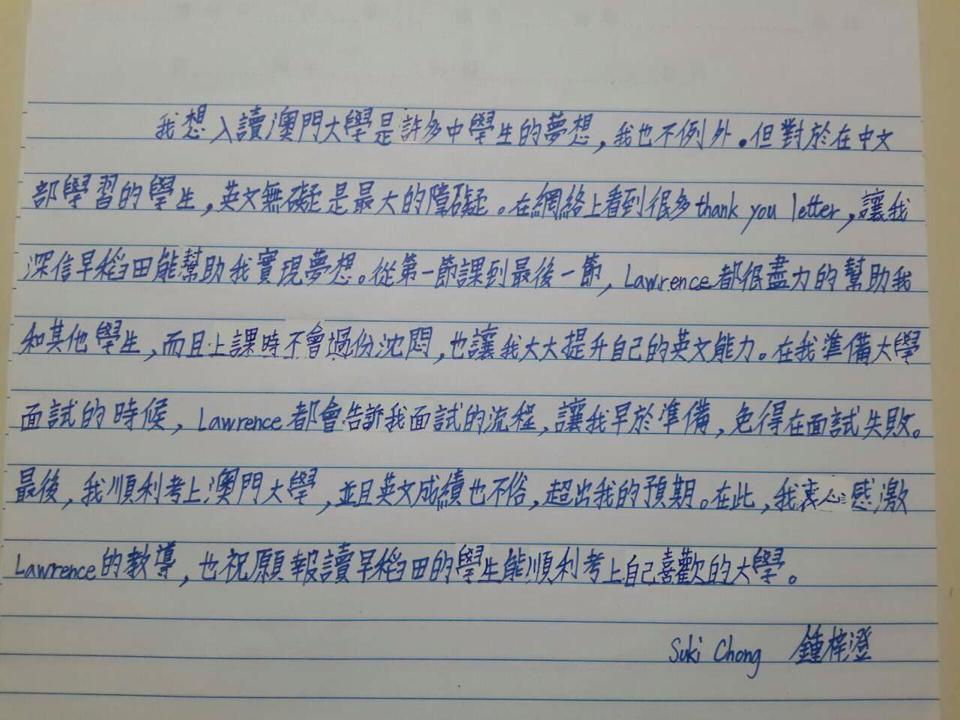 我想入讀澳門大學是許多中學生的夢想，我也不例外。但對於在中文
部學習的學生，英文無礙是最大的障礙。在網絡上看到很多thank you letter，讓我
深信早稻田能幫助我實現夢想。從第一節課到最後一節，Lawrence都很盡力的幫助我
和其他學生，而且上課時不會過份沈悶，也讓我大大提升自己的英文能力。在我準備大學
面試的時候，Lawrence都會告訴我面試的流程，讓我早於準備，免得在面試失敗。
最後，我順利考上澳門大學，並且英文成績也不俗，超出我的預期。在此，我衷心感激
Lawrence的教導，也祝願報讀早稻田的學生能順利考上自己喜歡的大學。
Suki Chong 鍾梓澄